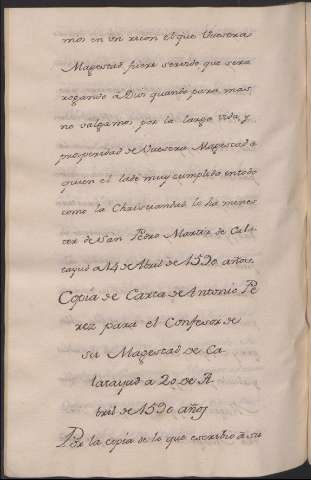 mos en un rincon el que Vuestra
Magestad fuere servido que sera
rogando a Dios quando para mas
no valgamos por la larga vida, y
prosperidad de Vuestra Magestad a
quien el lo dé muy cumplido en todo
como la Christiandad lo ha menes
ter de San Pedro Martir de Cala
tayud a 14 de Abril de 1590 años.
Copia de Carta de Antonio Pe
rez para el Confesor de
su Magestad de Ca
latayud a 20 de A
bril de 1590 años
Por la copia de lo que escribo a su